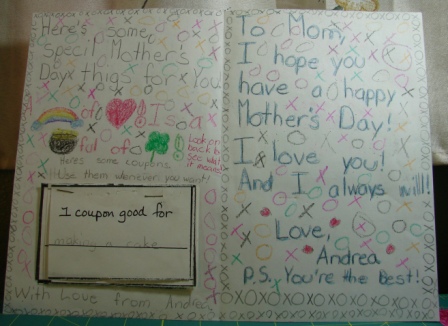 Here's some
Special Mother's
Day thigs for You
of ! I s a
ful of !
Look on
back to
see what
it means!
Heres some coupons.
Use them whenever you want!
I coupon good for
making a cake
With Love from Andrea
To Mom,
I hope you
have a happy
Mother's Day!
I love you!
And I always will!
Love,
Andrea
P.S. You're the Best!
XOXOXOXOXOXOXOXO